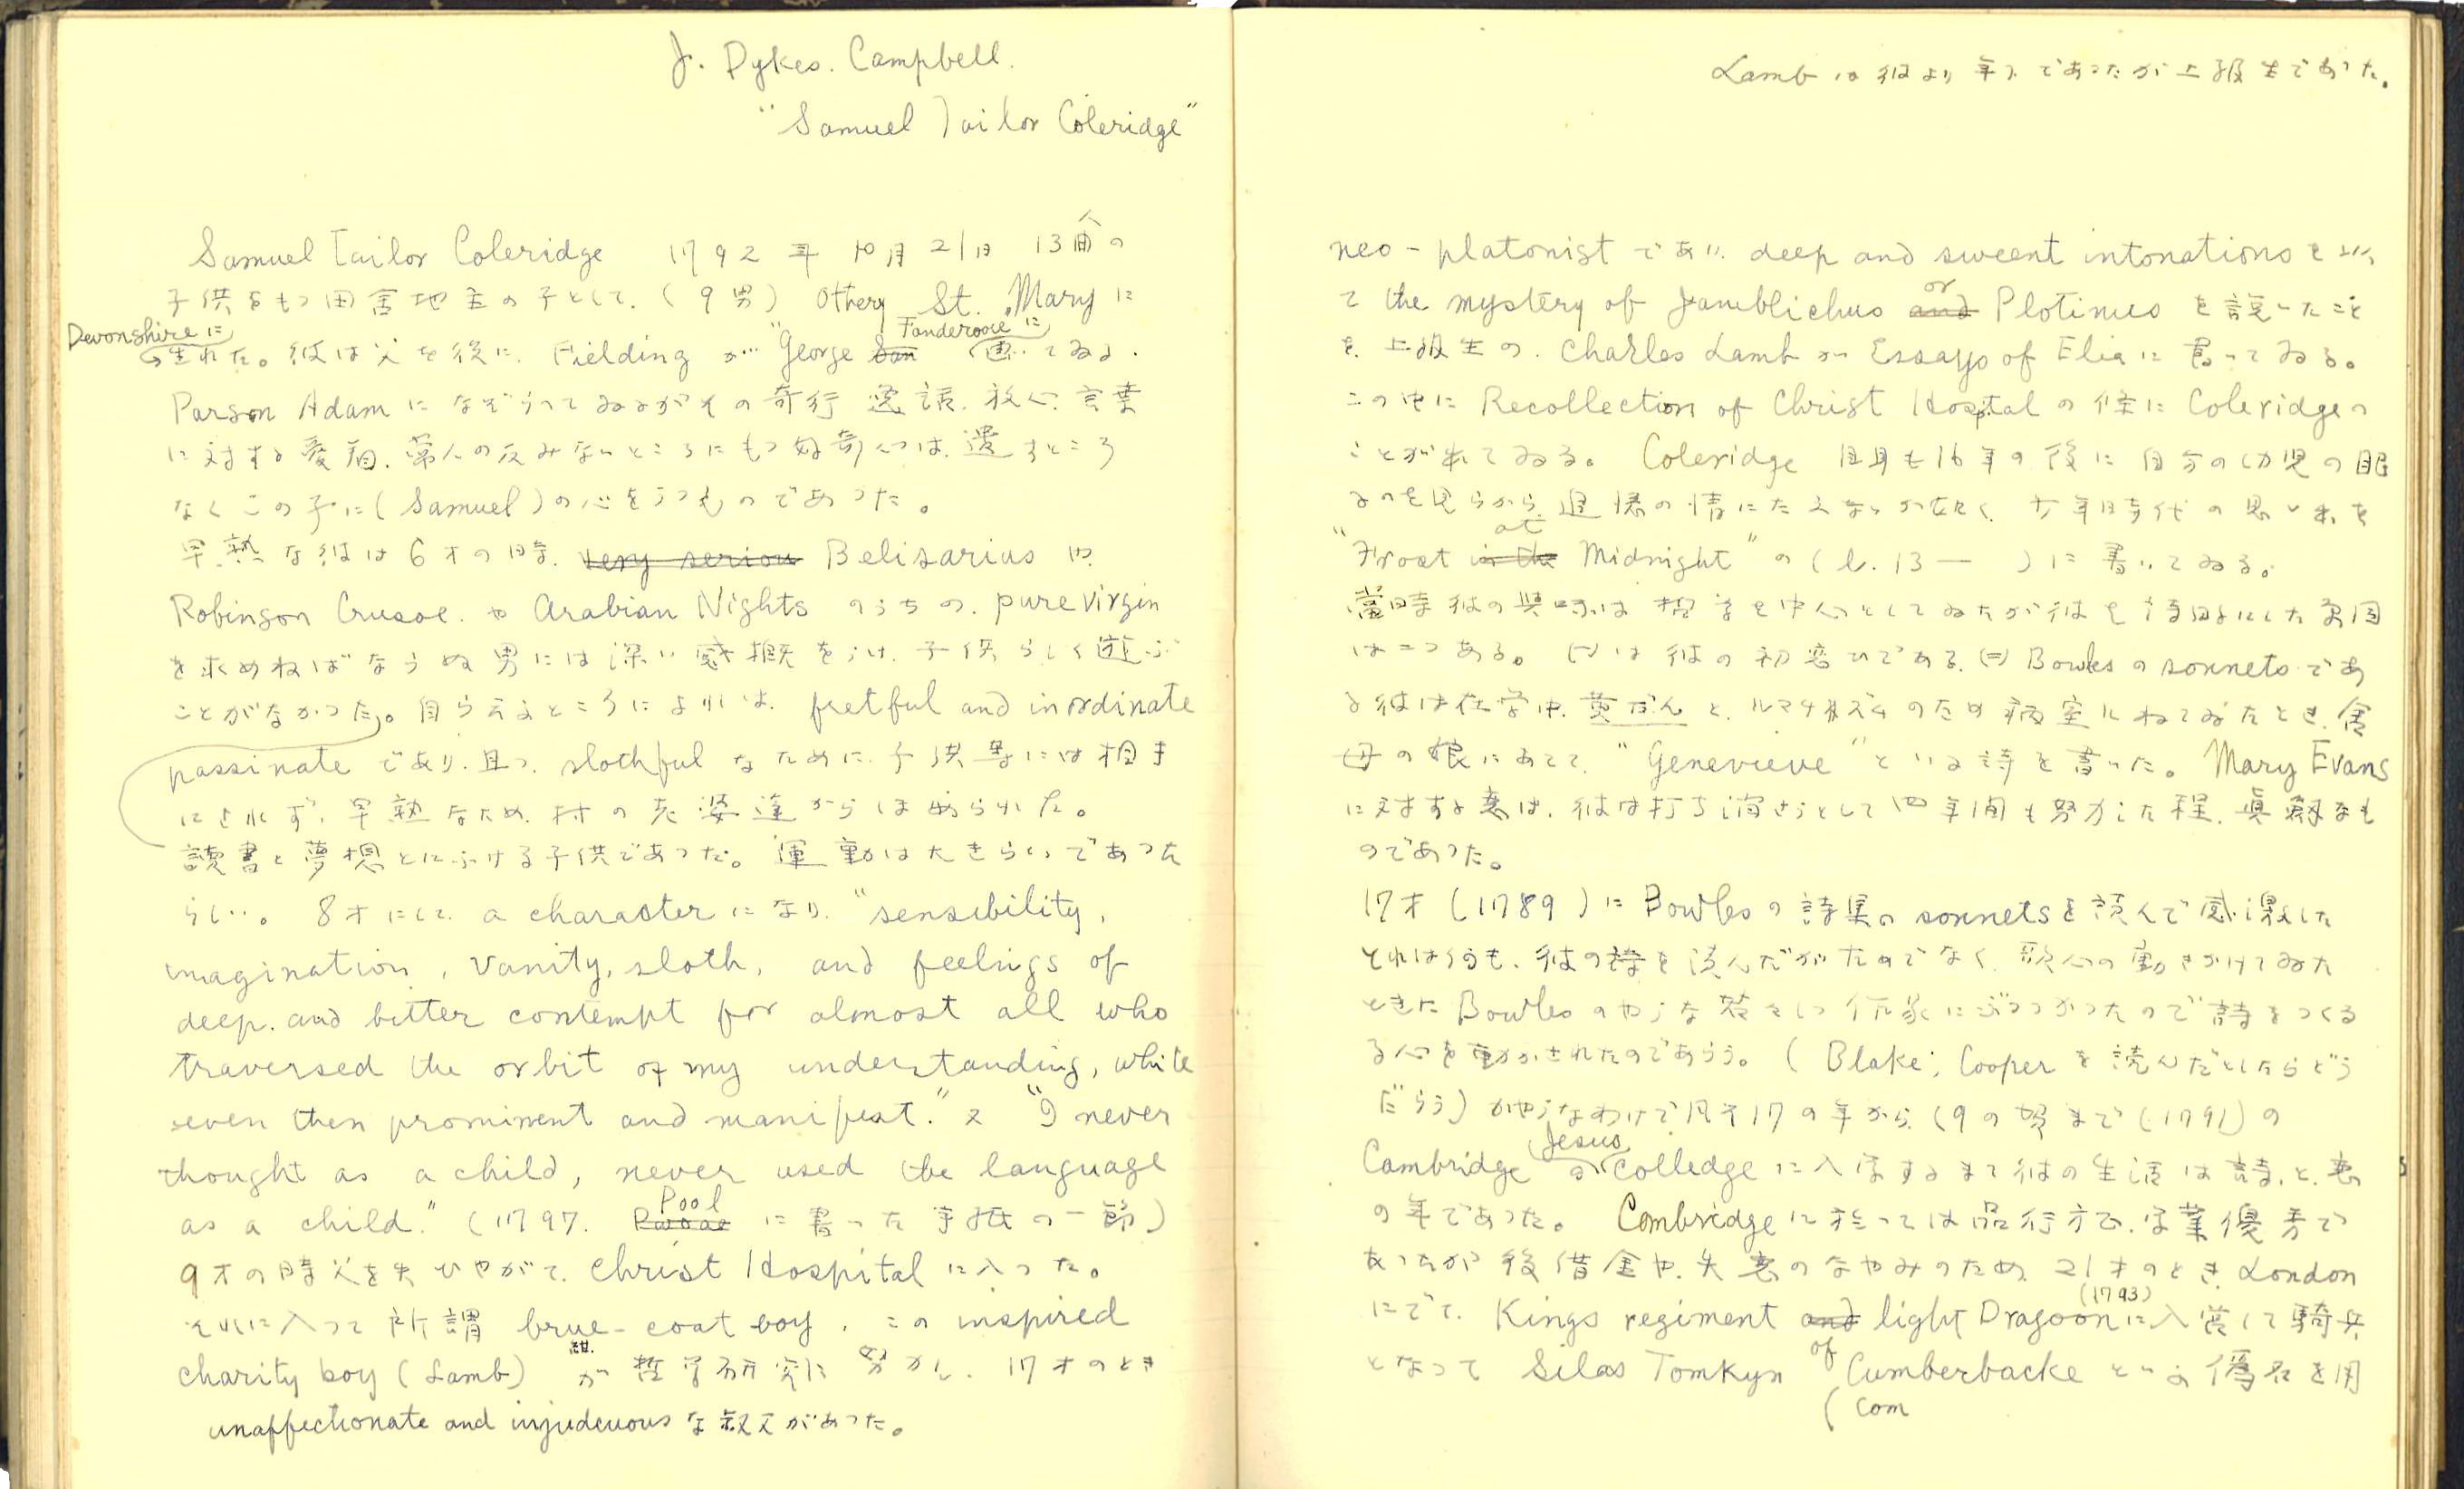 J. Dykes. Campbell.
"Samuel Tailor Coleridge"
Samuel Tailor Coleridge 1792年10月21日 13人の
子供をもつ田舎地主の子として.(9男) Othery St. Mary に
Devonshireに
生れた。彼は父を後に. Fielding が "George Tanderoone に
Parson Adam になぞらってゐるがその奇行 逸話. 放心. 言葉
に対する愛着. 常人の反みないところにもつ好奇心は. 遺すところ
なくこの子に(Samuel)の心をうつものであった。
早熟な彼は6才の時. very seriou Belisarius や
Robinson Crusoe. や Arabian Nights のうちの. pure virgin
を求めねばならぬ男には深い感概をうけ. 子供らしく遊ぶ
ことがなかった。自ら云ふところによれば. fretful and inordinate
passinate であり. 且つ. slothful なために. 子供等には相手
にされず. 早熟なため. 村の老婆達からほめられた。
読書と夢想とにふける子供であった。運動は大きらいであった
らしい。 8才にして a character になり. "sensibility,
imagination, vanity, sloth, and feelings of
deep. and bitter contempt for almost all who
traversed the orbit of my understanding, white
even then prominent and manifest." 又 "I never
thought as a child, never used the language
as a child." (1797. Pool に書いた手紙の一節)
9才の時父を失ひやがて. Christ Hospital に入った。
それに入って所謂 brue-coat boy. この inspired
charity boy (Lamb) が哲学研究に努力し. 17才のとき
unaffectionate and injudcuous な叙文があった。
Lamb は彼より年下であったが上級生であった。
neo-platonist であり. deep and sweent intonations を以
て the mystery of Jamblichus or and Plotinus を説いたこと
を. 上級生の. Charles Lamb が Essays of Elia に書いてゐる。
この中に Recollection of Christ Hospital の條に Coleridge の
ことが出てゐる。 Coleridge 自身も16年の後に自分の幼児の眠
るのを見ながら. 追懐の情にたえないが如く. 少年時代の思い出を
"Frost at in the Midnight" の (l. 13— ) に書いてゐる。
當時彼の興味は哲学を中心としてゐたが彼を詩因にした原因
は二つある。 (一)は彼の初恋ひである. (二) Bowles の sonnets であ
る彼は在学中. 黄だんと. ルマチズムのため病室にねてゐたとき. 舎
母の娘にあてて. "Genevieve" といふ詩を書いた。 Mary Evans
に対する恋は. 彼は打ち消さうとして四年間も努力した程. 真剣なも
のであった。
17才(1789)に Bowles の詩集の sonnets を読んで感激した
とれはうも. 彼の詩を読んだがためでなく. 歌心の動きかけてゐた
ときた Bowles のやうな若々しい作家にぶっつかったので詩をつくる
る心を動かされたのであらう。 (Blake; Cooper を読んだとしたらどう
だらう) かやうなわけで凡そ17の年から. 19の時まで(1791)の
Cambridge の Jesus Colledge に入学するまで彼の生活は詩. と. 恋
の年であった。 Combridge に於いては品行方正. 学業優秀で
あったが 後借金や. 失恋のなやみのため 21才のとき London
にでて. Kings regiment and light Dragoon (1793) に入営して騎兵
となって Silas Tomkyn of Cumberbacke といふ偽名を用
(Com